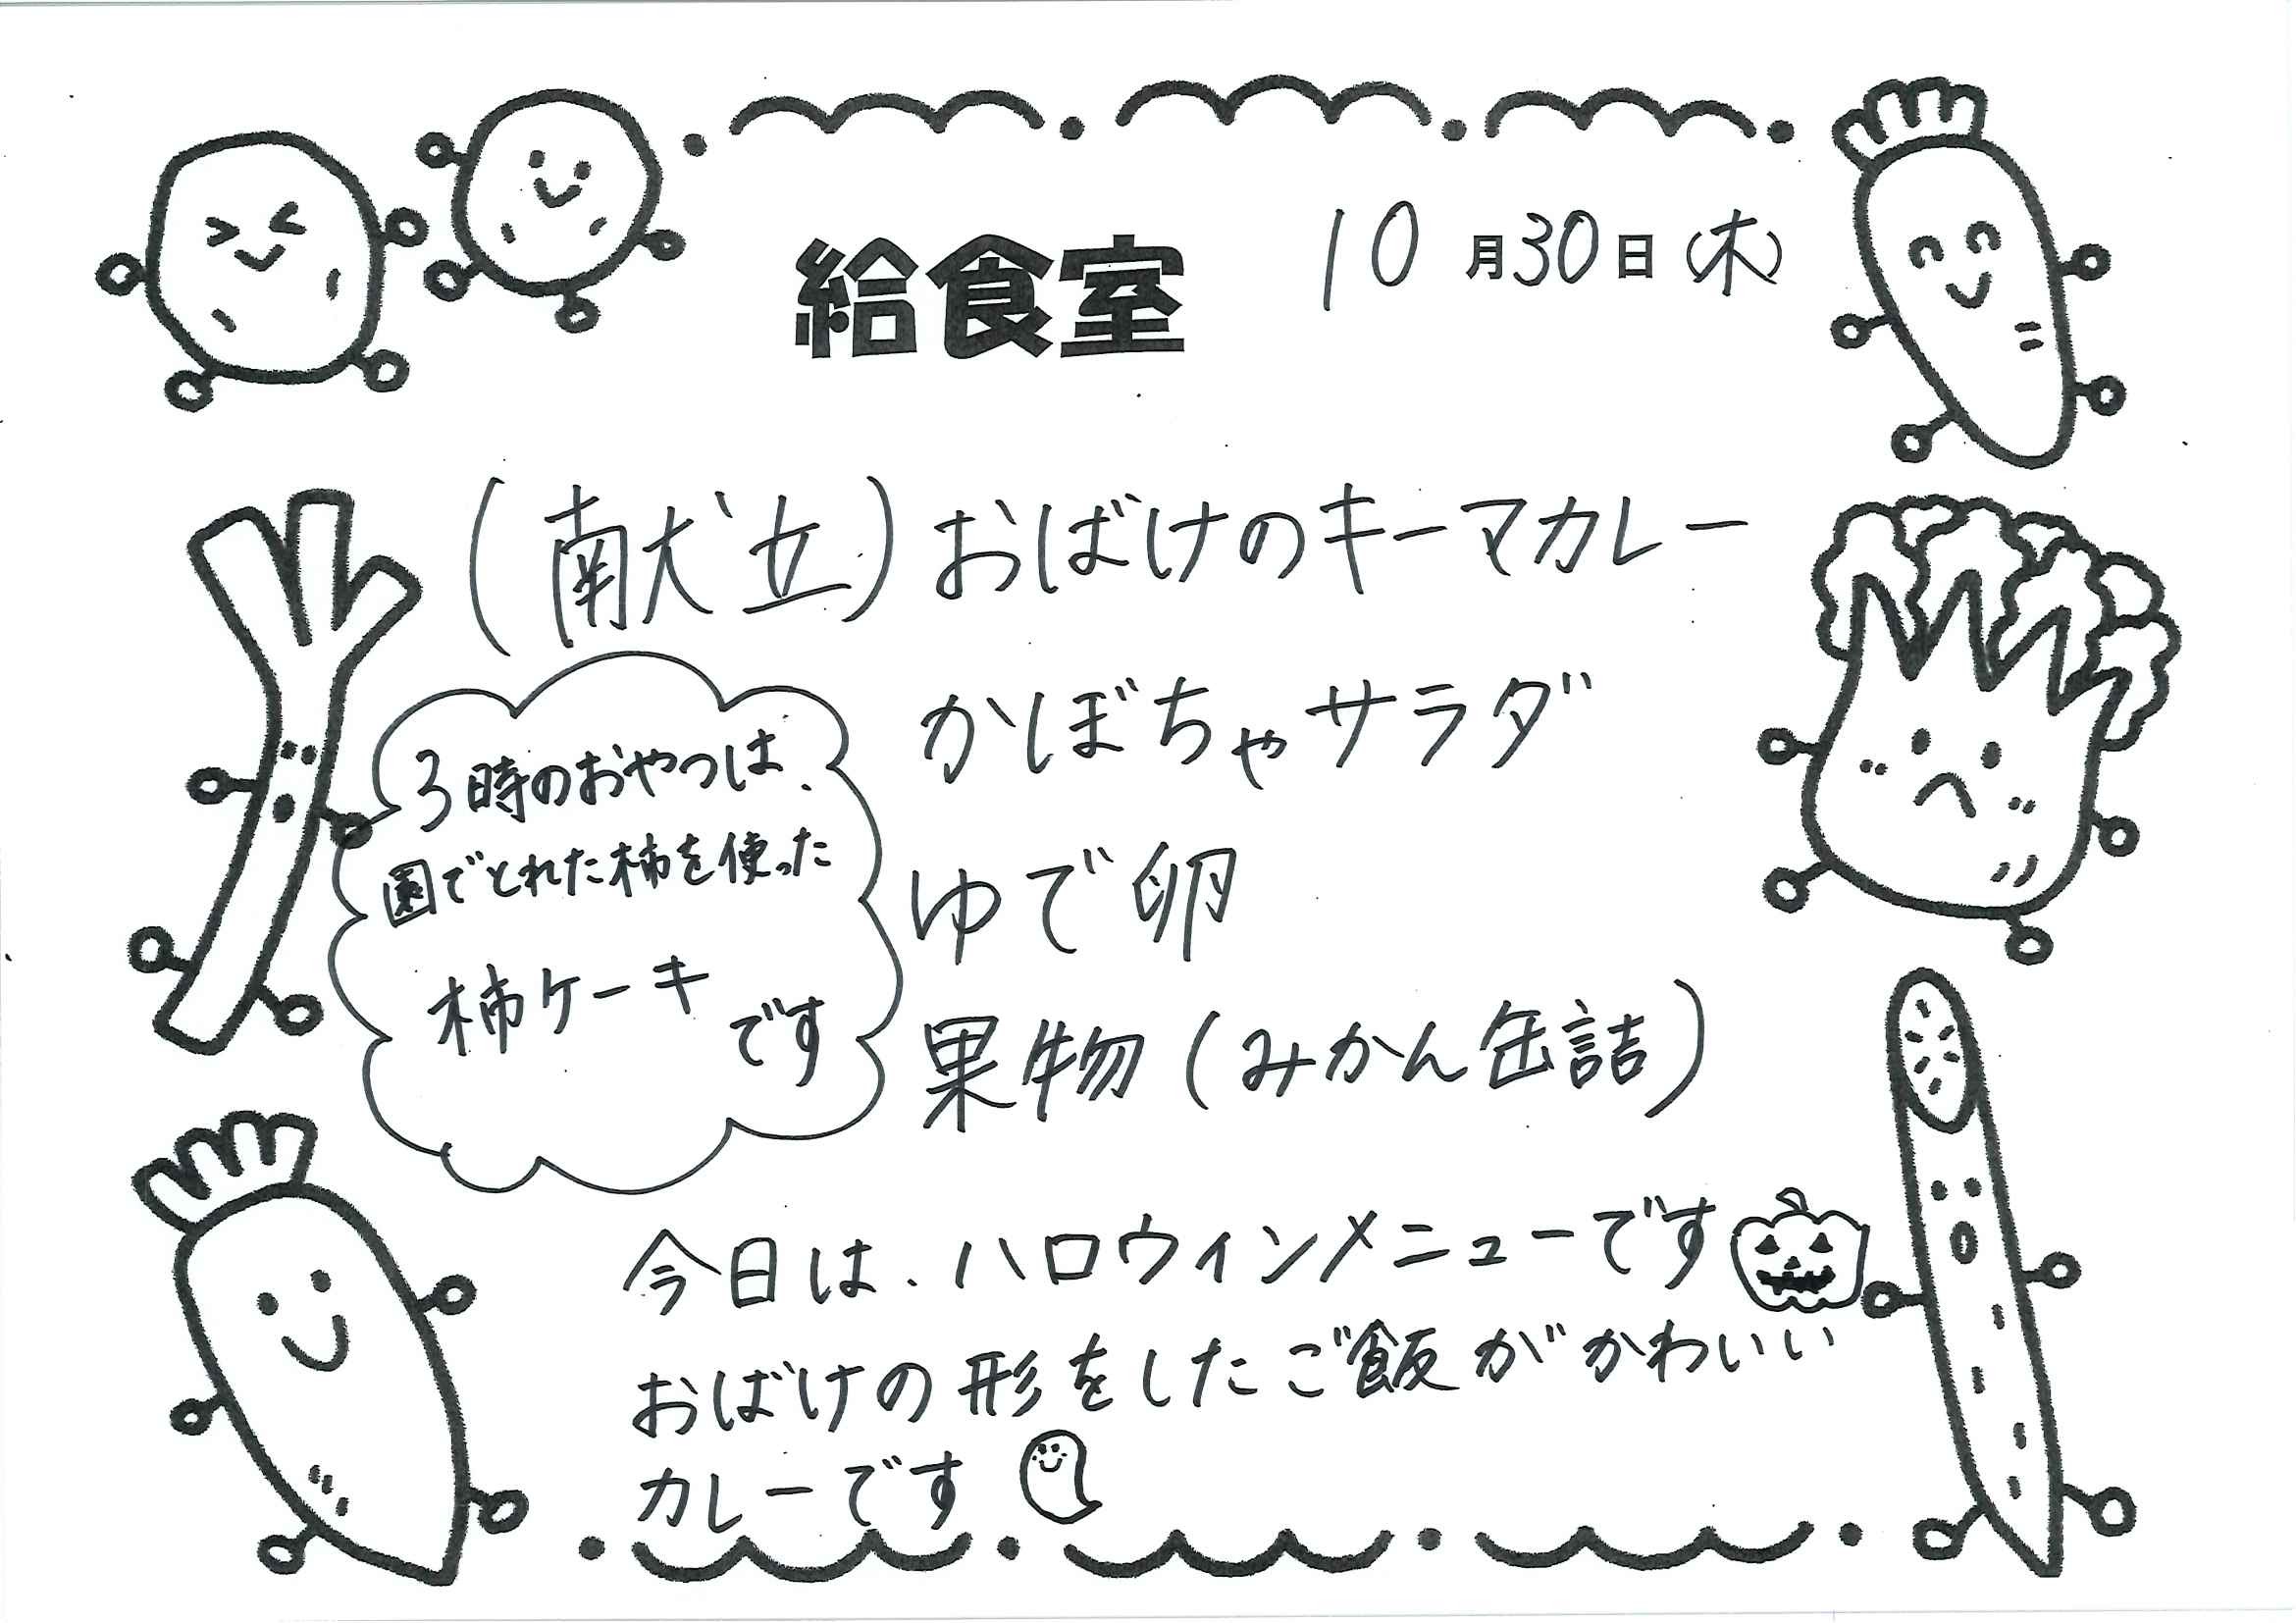 給食室
10月30日(木)
(献立)おばけのキーマカレー
かぼちゃサラダ
ゆで卵
果物(みかん缶詰)
3時のおやつは、
園でとれた柿を使った
柿ケーキ
です
今日は、ハロウィンメニューです
おばけの形をしたご飯がかわいい
カレーです